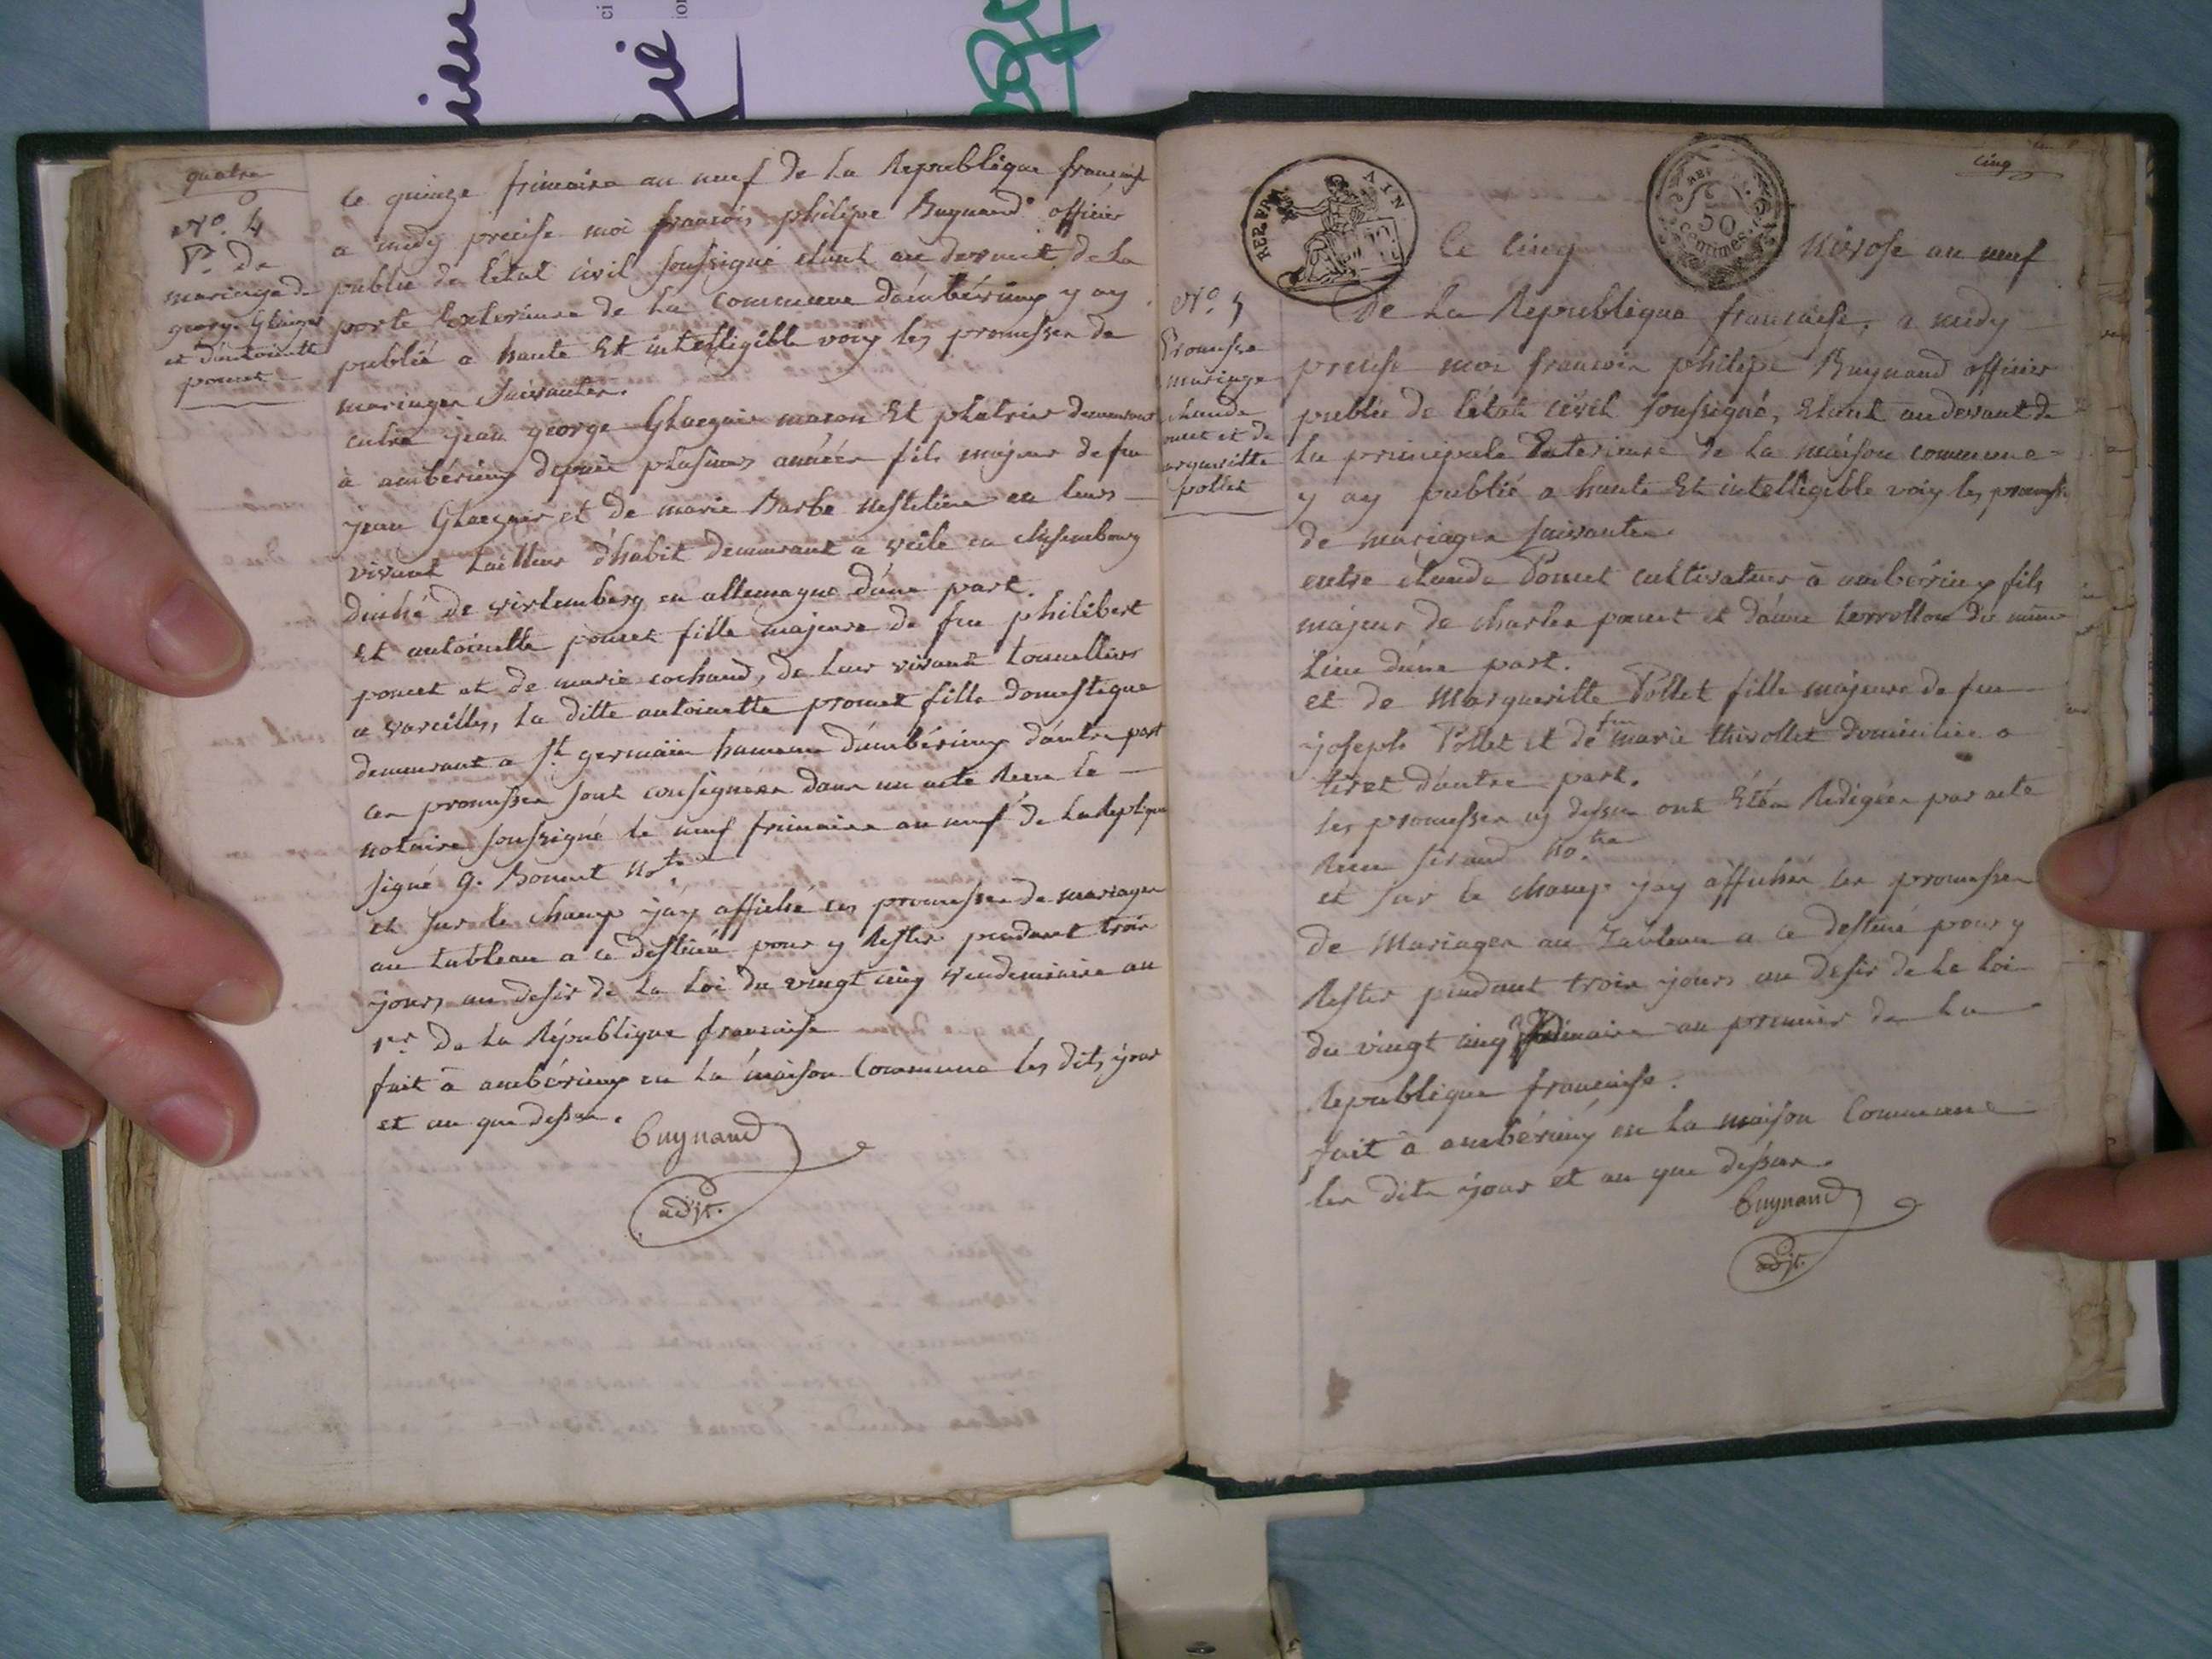 quatre
N.o 4
P. de
mariage de
george Glaeguer
et d'antoinette
poncet
Le quinze frimaire an neuf de la Republique francaise
a midy precise moi francois philipe Buynand officier
public de l'état civil soussigné etant au devant de la
porte Exterieure de la commune d'ambérieux y ay
publié a haute Et intelligible voix les promesses de
mariages suivantes.
entre jean george Glaeguer macon Et platrier demeurant
à ambérieux depuis plusieurs années fils majeur de feu
jean Glaeguer et de marie Barbe en leurs
vivant tailleur d'habit demeurant a
duché de virtemberg en allemagne d'une part.
Et antoinette poncet fille majeure de feu philibert
poncet et de marie cochand, de leur vivant tonnelliers
a vareilles, la ditte antoinette poncet fille domestique
demeurant a St germain hameau d'ambérieux d'autre part
ces promesses sont consignées dans un acte Recu le
notaire soussigné le neuf frimaire an neuf de la Replique
signé G. Bonnet not.re
et sur le champ j'ay affiché ces promesses de mariages
au tableau a ce destinée pour y Rester pendant trois
jours, au desir de la Loi du vingt cinq vendemiaire an
1.er de la République francaise
fait à ambérieux en la maison Commune les dits jour
et an que dessus.
Buynand
adjt.
cinq
REP. FRA.
AIN
50
centimes
Le cinq Nivose an neuf
N.o 5
Promesse
mariage
claude
poncet et de
margueritte
pollet
De La Republique francaise, a midy
precise moi francois philipe Buynand officier
public de l'état civil soussigné, Etant au devant de
la principale Exterieure de la maison commune
y ay publié a haute Et intelligible voix les promesses
de mariages suivantes
entre claude Poncet cultivateur à ambérieux fils
majeur de charles poncet et d'anne terrollon du meme
Lieu d'une part.
et de Marguerite Pollet fille majeure de feu
joseph Pollet et de feu marie thivollet domiciliée a
tiret d'autre part.
les promesses cy dessus ont Etés Redigées par acte
Recu Sirand No.tre
et sur le champ j'ay affichés les promesses
de Mariages au Tableau a ce destiné pour y
Rester pendant trois jours au desir de la loi
du vingt cinq au premier de la
Republique francaise.
fait à ambérieux en la maison Commune
les dits jour et an que dessus.
Buynand
adjt.